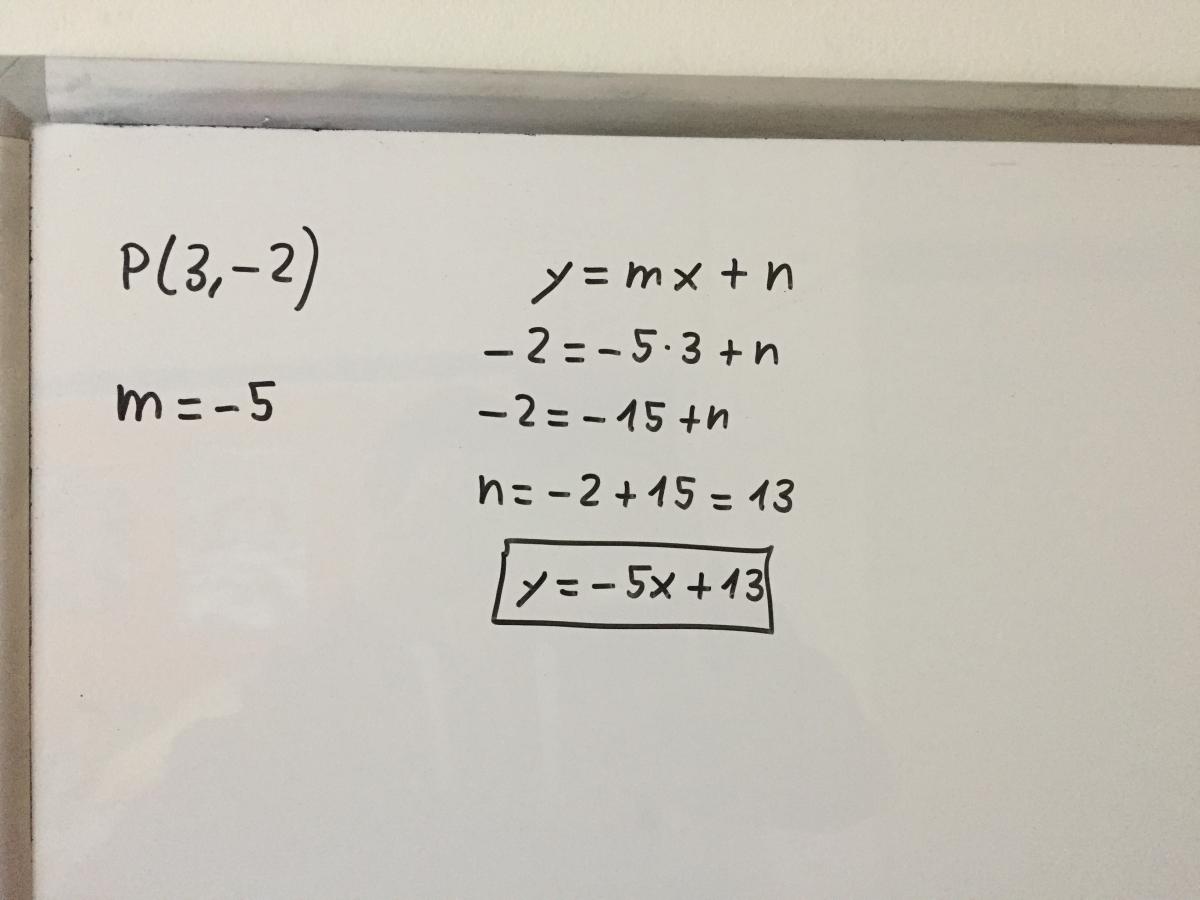 P(3,-2)
m=-5
y=mx+n
-2=-5·3+n
-2=-15+n
n=-2+15=13
y=-5x+13